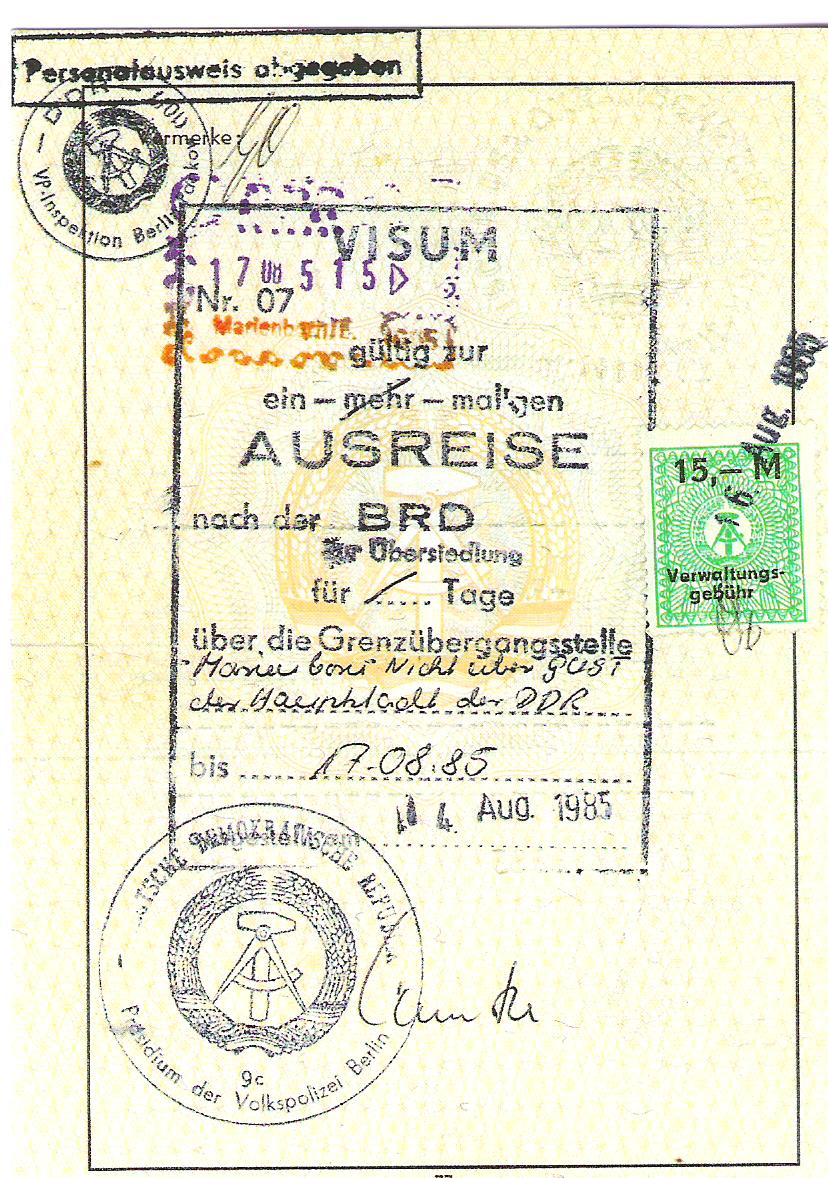 Personalausweis abgegeben
Vermerke:
VP-Inspektion Berlin
VISUM
17 08 5 15
Nr. 07
Marienborn
gültig zur
ein – mehr – maligen
AUSREISE
nach der BRD
zur Übersiedlung
für ...... Tage
über die Grenzübergangsstelle
Marienborn Nicht über GÜST
der Hauptstadt der DDR
bis 17.08.85
Aug. 1985
15,– M
Verwaltungs-
gebühr
Aug. 1985
DEMOKRATISCHE REPUBLIK
9c
Präsidium der Volkspolizei Berlin